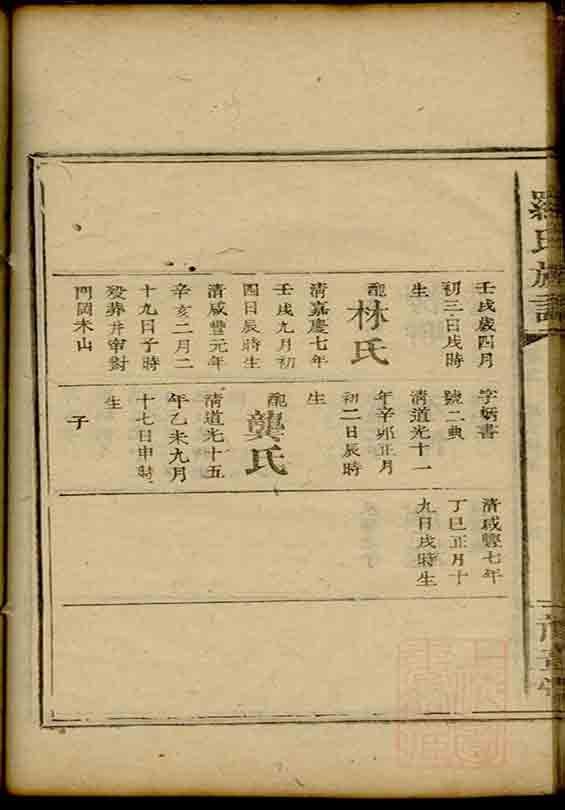 羅氏族譜
壬戌歲四月
初三日戌時
生
配林氏
清嘉慶七年
壬戌九月初
四日辰時生
清咸豐元年
辛亥二月二
十九日子時
歿葬井窋對
門岡木山
字炳書
號二典
清道光十一
年辛卯正月
初二日辰時
生
配龔氏
清道光十五
年乙未九月
十七日申時
生
子
清咸豐七年
丁巳正月十
九日戌時生